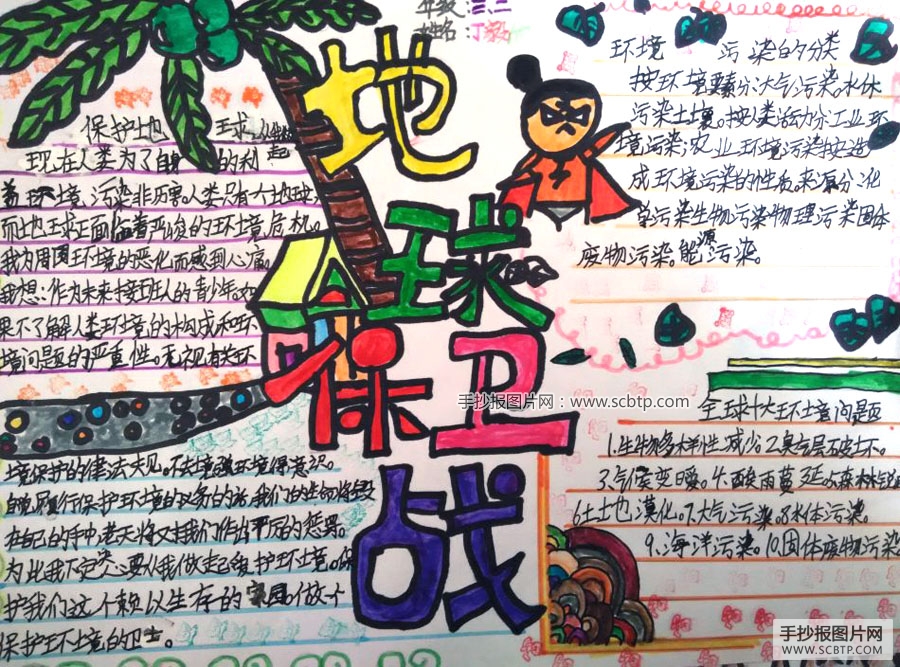 年级:三二
姓名:丁
地球保卫战
保护地球
现在人类为了自身的利
益环境污染非厉害人类只有个地球
而地球正面临着严竣的环境危机。
我为周围环境的恶化而感到心痛。
我想:作为未来接班人的青少年。如
果不了解人类环境的构成和环
境问题的严重性。无视有关环
境保护的律法
履行保护环境的义务的话,我们的生命将毁
在自己的手中,老天将又对我们作出严厉的惩罚。
为此我下定心要从我做走己维护环境。保
护我们这个赖以生存的家园。做个
保护环境的卫士。
环境污染的分类
按环境要素分大气污染。水体
污染土壤。按人类活动分工业环
境污染:农业环境污染按造
成环境污染的性质。来源分化
学污染生物污染物理污染固体
废物污染。能源污染。
全球十大环境问题
1.生物多样性减少2.臭气层破坏。
3.气候变暖。4.酸雨蔓延5.森林
6土地漠化。7.大气污染。8水体污染。
9.海洋污染。10.固体废物污染
手抄报图片网:www.scbtp.com
手抄报图片网
WWW.SCBTP.COM